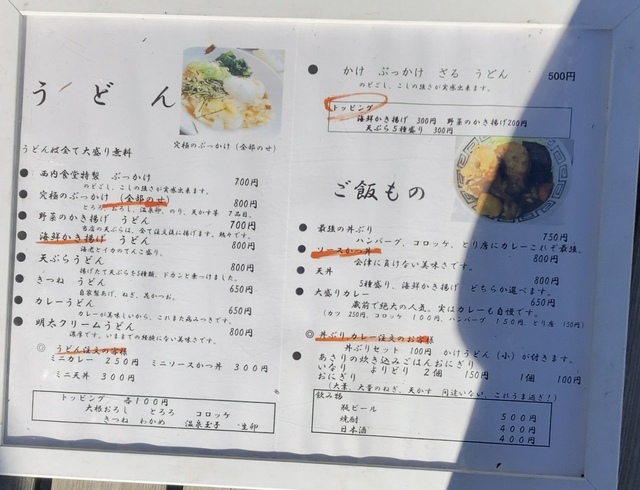 うどん
究極のぶっかけ（全部のせ）
うどんは全て大盛り無料
● 西内食堂特製 ぶっかけ 700円
のどごし、こしの強さが実感出来ます。
● 究極のぶっかけ（全部のせ） 800円
とろろ、おろし、温泉卵、のり、天かす等 7品目。
● 野菜のかき揚げ うどん 700円
当店の天ぷらは、全て注文後に揚げます。熱々です。
● 海鮮かき揚げ うどん 800円
海老とイカのてんこ盛り。
● 天ぷらうどん 800円
揚げたて天ぷらを5種類、ドカンと乗っけました。
● きつね うどん 650円
自家製あげ、ねぎ、昆かつお。
● カレーうどん 650円
カレーが美味しいから、これまた病みつきです。
● 明太クリームうどん 800円
濃厚です。いままでの経験にない美味さです。
◎ うどん注文の客様
ミニカレー 250円 ミニソースかつ丼 300円
ミニ天丼 300円
トッピング 各100円
大根おろし とろろ コロッケ
きつね わかめ 温泉玉子 生卵
● かけ ぶっかけ ざる うどん 500円
のどごし、こしの強さが実感出来ます。
トッピング
海鮮かき揚げ 300円 野菜のかき揚げ200円
天ぷら5種盛り 300円
ご飯もの
● 最強の丼ぶり 750円
ハンバーグ、コロッケ、とり唐にカレーこれぞ最強。
● ソースかつ丼 800円
会津に負けない美味さです。
● 天丼 800円
5種盛り、海鮮かき揚げ どちらか選べます。
● 大盛りカレー 650円
蔵前で絶大の人気。実はカレーも自慢です。
（カツ 250円、コロッケ 100円、ハンバーグ 150円、とり唐 150円）
◎ 丼ぶり カレー注文のお客様
丼ぶりセット 100円 かけうどん（小）が付きます。
● あさりの炊き込みごはんおにぎり
いなり よりどり 2個 150円 1個 100円
おにぎり
（大葉、大量のねぎ、天かす 間違いない、これうま過ぎ！）
飲み物
瓶ビール 500円
焼酎 400円
日本酒 400円